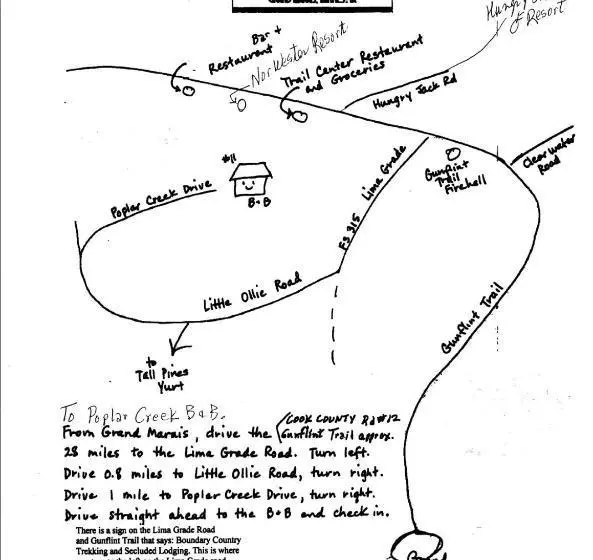 Bar +
Restaurant
Nor'Wester Resort
Trail Center Restaurant
and Groceries
Hungry
of Resort
Hungry Jack Rd
Clearwater
Road
Gunflint
Trail
Firehall
FS 315 Lima Grade
#11
B+B
Poplar Creek Drive
Little Ollie Road
Gunflint Trail
to
Tall Pines
Yurt
To Poplar Creek B&B.
COOK COUNTY Rd #12
From Grand Marais, drive the Gunflint Trail approx.
28 miles to the Lima Grade Road. Turn left.
Drive 0.8 miles to Little Ollie Road, turn right.
Drive 1 mile to Poplar Creek Drive, turn right.
Drive straight ahead to the B+B and check in.
There is a sign on the Lima Grade Road
and Gunflint Trail that says: Boundary Country
Trekking and Secluded Lodging. This is where